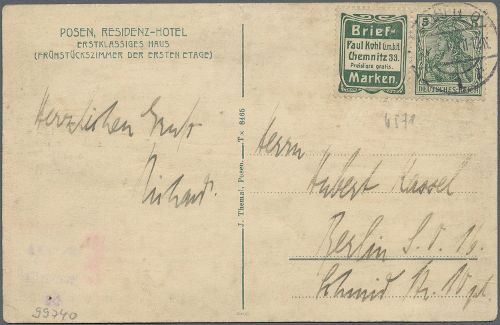 POSEN, RESIDENZ-HOTEL
ERSTKLASSIGES HAUS
(FRÜHSTÜCKSZIMMER DER ERSTEN ETAGE)
Herzlichen Gruß
Richard.
J. Themal, Posen. T× 8465
Brief-
Paul Kohl G.m.b.H.
Chemnitz 33.
Preisliste gratis.
Marken.
5
DEUTSCHES REICH
Herrn
Hubert Kassel
Berlin S. W.
99740